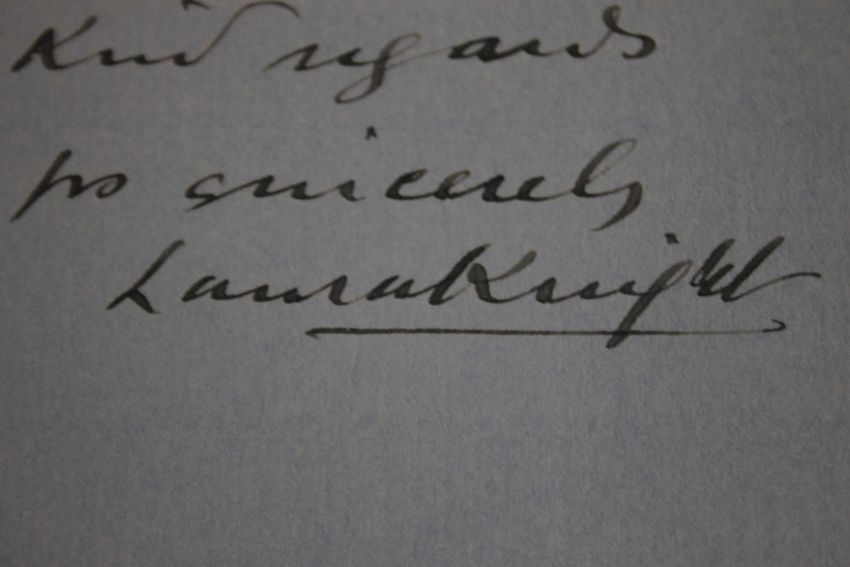 Kind regards
yrs sincerely
Laura Knight